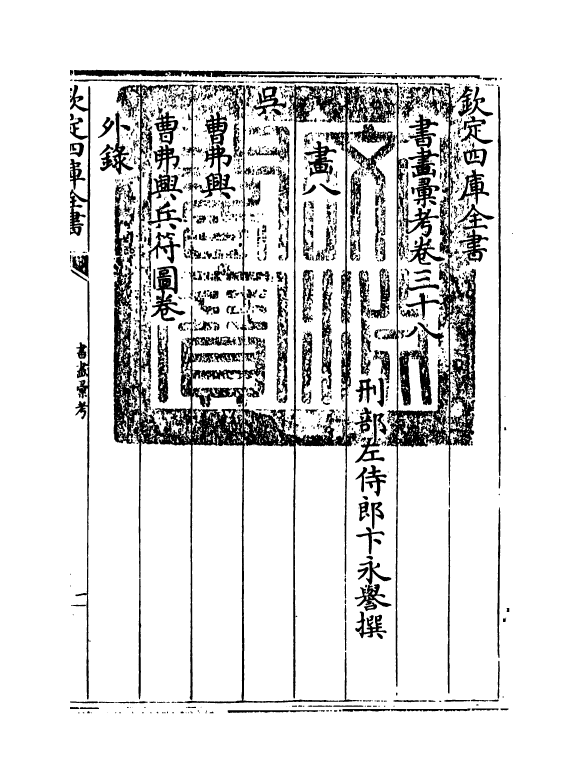 欽定四庫全書
書畫彚考卷三十八
刑部左侍郎卞永譽撰
畫八
吳
曹弗興
曹弗興兵符圖卷
外錄
欽定四庫全書
書畫彚考